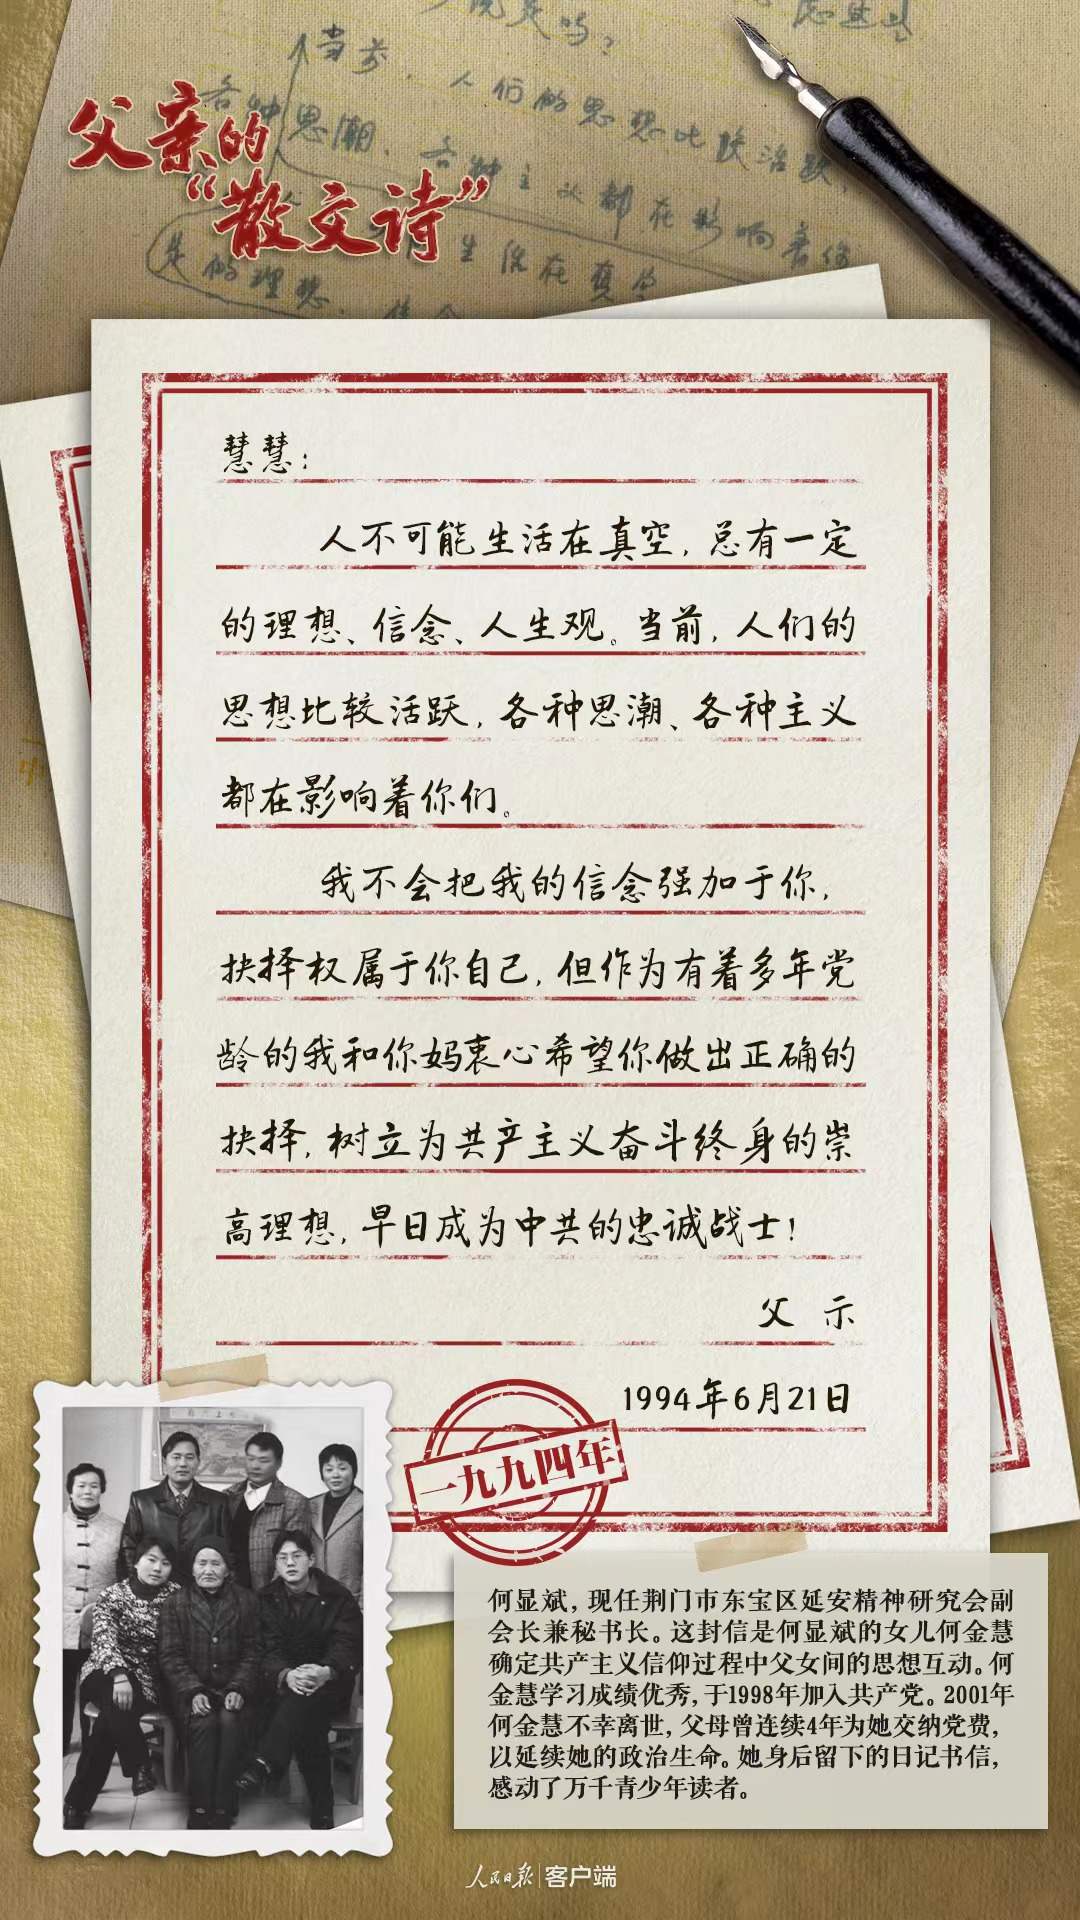 父亲的
“散文诗”
当前，人们的思想比较活跃，
各种思潮、各种主义都在影响着你
是的理想、信念
生活在真空
慧慧：
人不可能生活在真空，总有一定
的理想、信念、人生观。当前，人们的
思想比较活跃，各种思潮、各种主义
都在影响着你们。
我不会把我的信念强加于你，
抉择权属于你自己，但作为有着多年党
龄的我和你妈衷心希望你做出正确的
抉择，树立为共产主义奋斗终身的崇
高理想，早日成为中共的忠诚战士！
父 示
1994年6月21日
一九九四年
何显斌，现任荆门市东宝区延安精神研究会副
会长兼秘书长。这封信是何显斌的女儿何金慧
确定共产主义信仰过程中父女间的思想互动。何
金慧学习成绩优秀，于1998年加入共产党。2001年
何金慧不幸离世，父母曾连续4年为她交纳党费，
以延续她的政治生命。她身后留下的日记书信，
感动了万千青少年读者。
人民日报|客户端